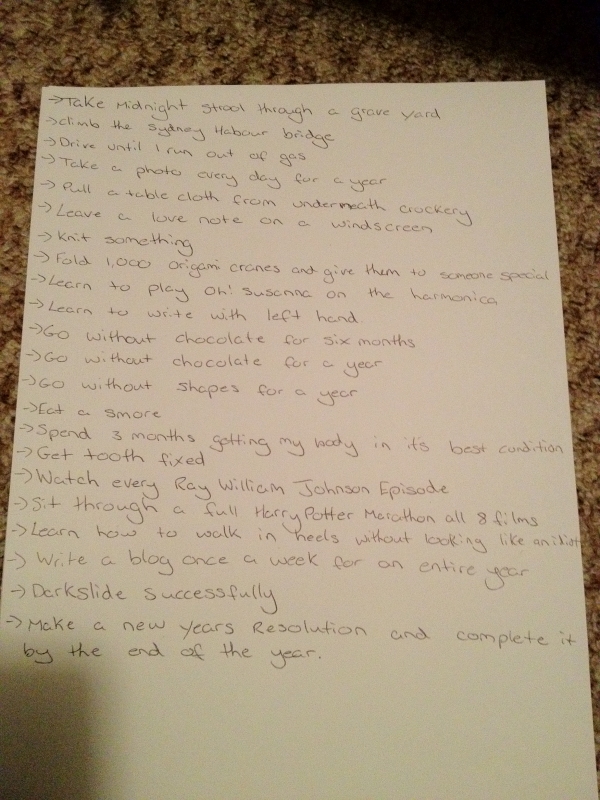 →Take Midnight strool through a grave yard
→climb the Sydney Habour bridge
→Drive until I run out of gas
→Take a photo every day for a year
→Pull a table cloth from underneath crockery
→Leave a love note on a windscreen
→Knit something
→Fold 1,000 origami cranes and give them to someone special
→Learn to play Oh! Susanna on the harmonica
→Learn to write with left hand
→Go without chocolate for six months
→Go without chocolate for a year
→Go without shapes for a year
→Eat a smore
→Spend 3 months getting my body in its best condition
→Get tooth fixed
→Watch every Ray William Johnson Episode
→Sit through a full Harry Potter Marathon all 8 films
→Learn how to walk in heels without looking like an idiot
→Write a blog once a week for an entire year
→Darkslide successfully
→Make a new years Resolution and complete it
by the end of the year.